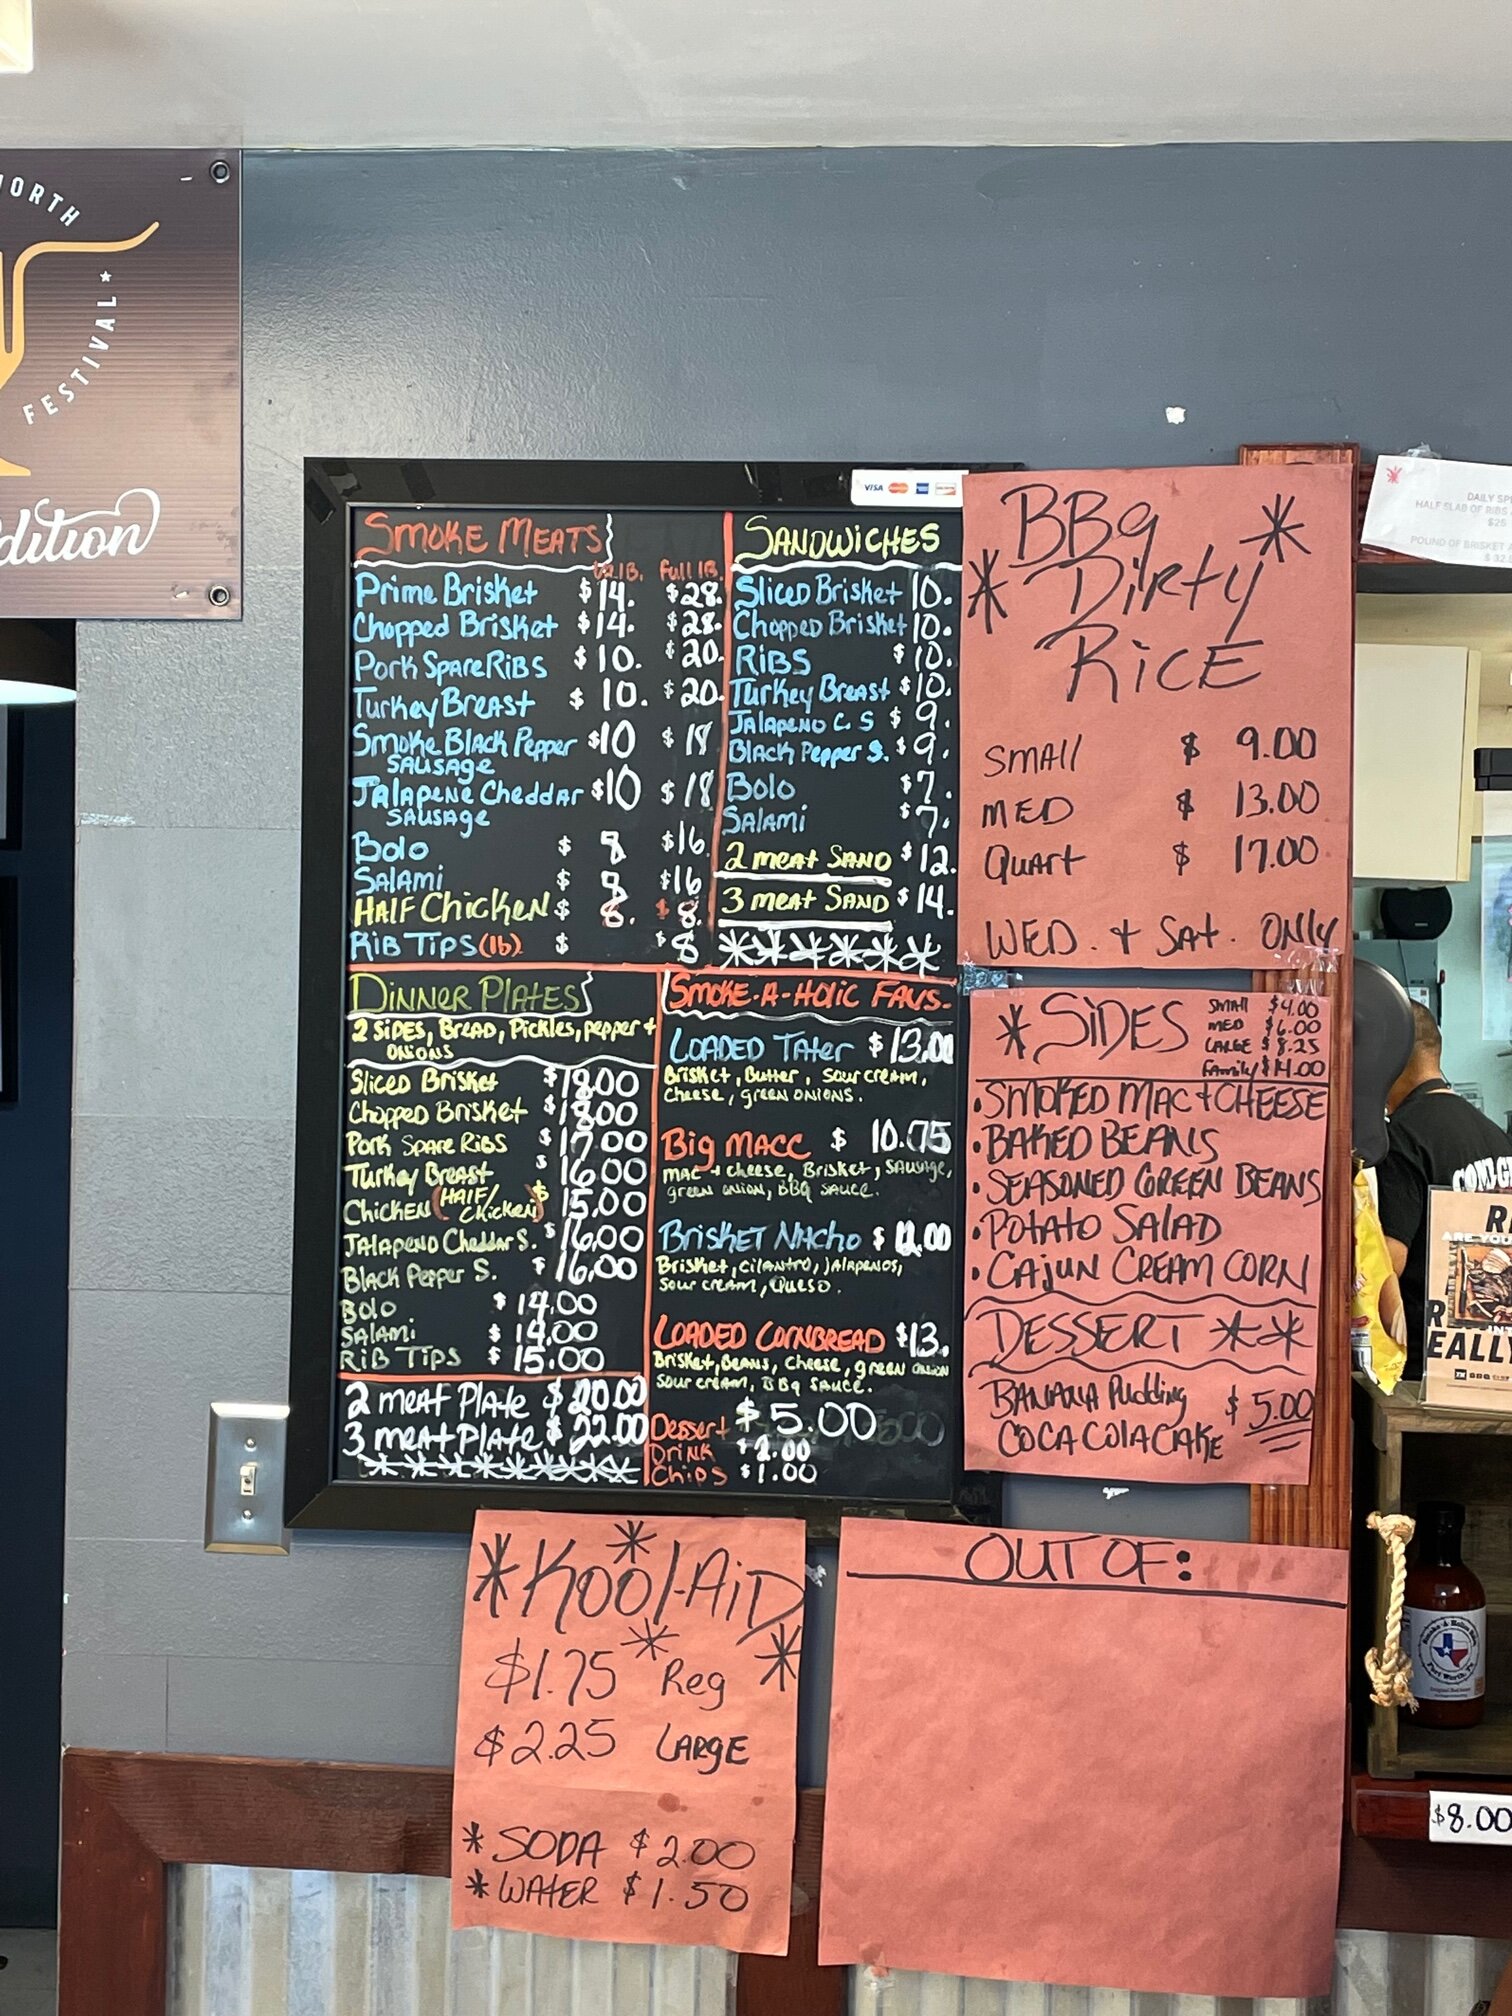 ORTH
FESTIVAL
dition
VISA
SMOKE MEATS
1/2 lB. Full lB.
Prime Brisket $14. $28.
Chopped Brisket $14. $28.
Pork Spare RiBS $10. $20.
Turkey Breast $10. $20.
Smoke Black Pepper $10 $18
SAUSAge
JAlApeNe CheddAr $10 $18
SAUSAge
Bolo $8 $16
SAlAmi $8 $16
HAlF Chicken $8. $8.
RiB Tips (lb) $ $8
SANDWICHES
Sliced Brisket 10.
Chopped Brisket 10.
RiBS $10.
Turkey Breast $10.
JAlApeNO C. S $9.
Black Pepper S. $9.
Bolo $7.
SAlAmi $7.
2 meAt SAND $12.
3 meAt SAND $14.
DINNER PLATES
2 SiDES, BreAD, Pickles, pepper +
ONiONS
Sliced Brisket $18.00
Chopped Brisket $18.00
Pork SpAre RiBS $17.00
Turkey Breast $16.00
ChickeN (HAlF/Chicken) $15.00
JAlApeNO CheddAr S. $16.00
Black Pepper S. $16.00
Bolo $14.00
SAlAmi $14.00
RiB TipS $15.00
2 meAt Plate $20.00
3 meAt Plate $22.00
SMOKE-A-HOliC FAVS.
LOADED TAter $13.00
Brisket, Butter, Sour creAm,
Cheese, green ONiONS.
Big MACC $10.75
mac + cheese, Brisket, SAusage,
green onion, BBQ SAuce.
BriskET NACho $11.00
Brisket, cilANtro, jAlApeNos,
Sour creAm, Queso.
LOADED CORNBREAD $13.
Brisket, BeANS, cheese, green ONiON
Sour creAm, BBQ SAuce.
Dessert $5.00
DriNK $2.00
Chips $1.00
BBq
Dirty
RiCE
SMAll $9.00
MED $13.00
QuArt $17.00
WED. + SAt. ONly
SiDES
SMAll $4.00
MED $6.00
LARGE $8.25
FAmily $14.00
•SMOKED MAC + CHEESE
•BAKED BEANS
•SEASONED GREEN BEANS
•POTATO SALAD
•CAJUN CREAM CORN
DESSERT
BANANA Pudding
COCA COlA CAKE $5.00
Kool-AiD
$1.75 Reg
$2.25 LARGE
*SODA $2.00
*WATER $1.50
OUT OF:
DAILY SP
HALF SLAB OF RIBS
$25
POUND OF BRISKET
ARE YOU
EALLY
$8.00